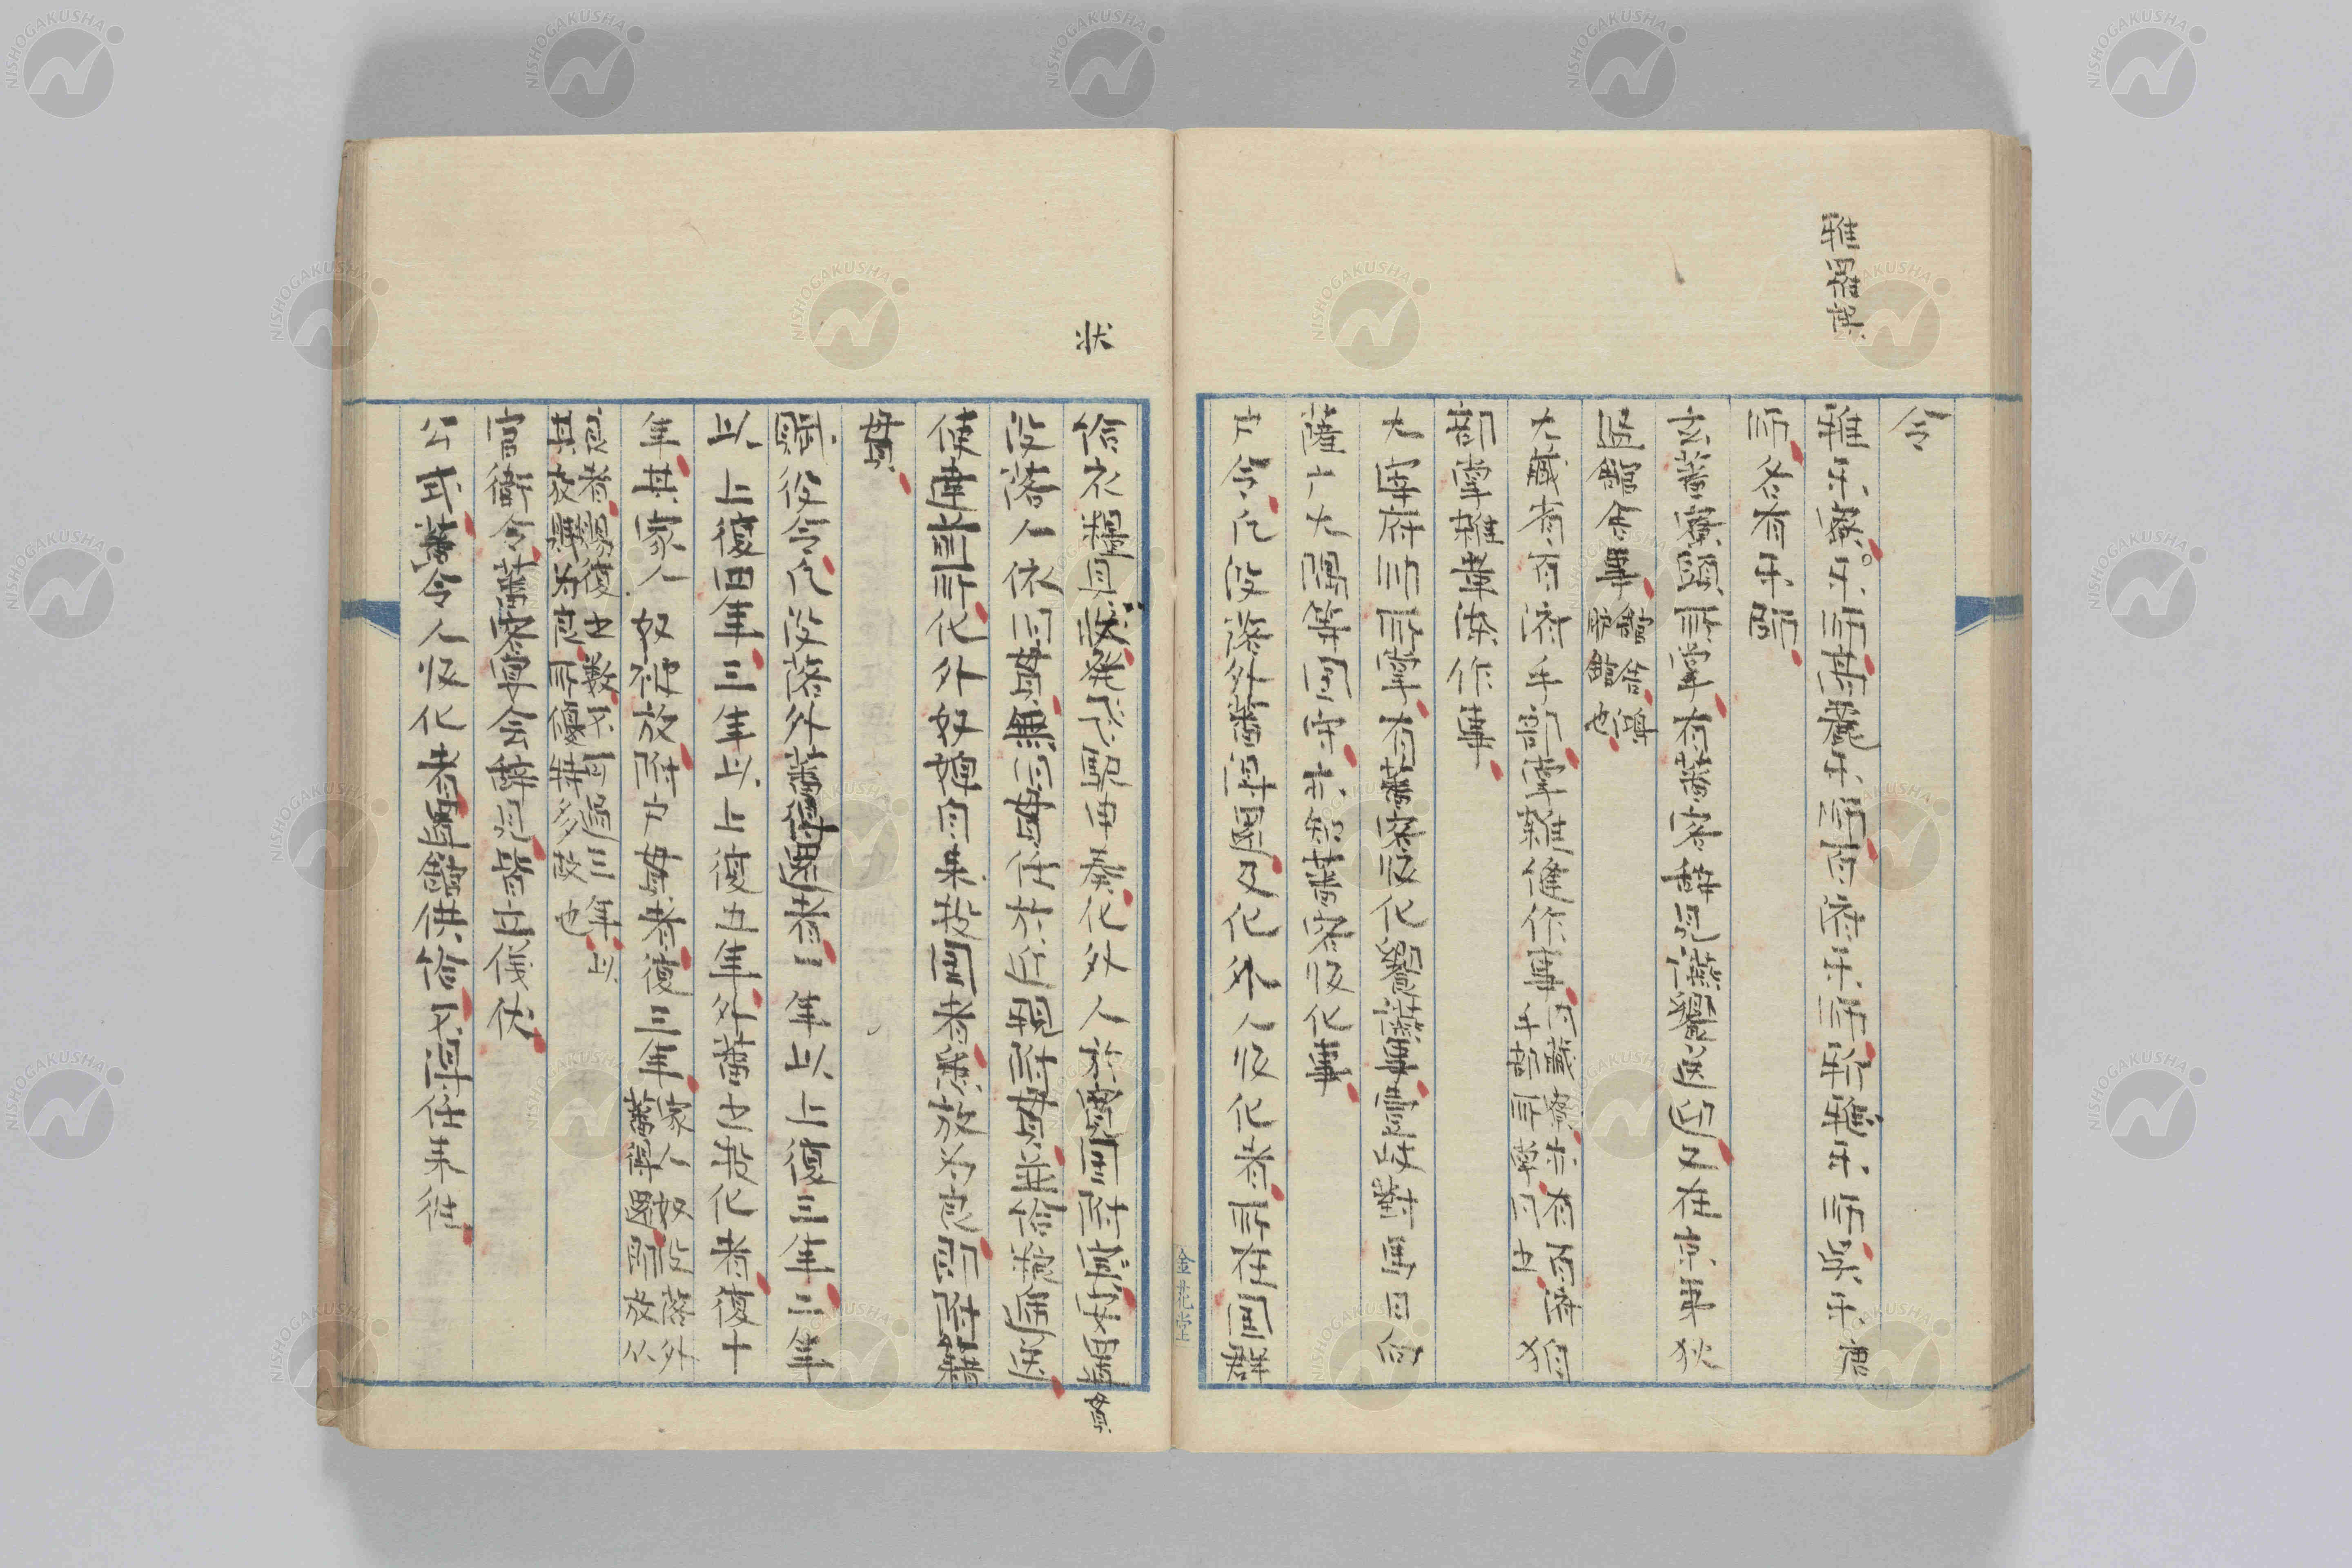 令
雅楽寮。楽師高麗楽師百済楽師新羅楽師楽唐
師各有楽師
玄蕃寮頭所掌有蕃客辞見讌饗送迎及在京夷狄
監館舎事館者鴻
臚館也
大蔵省百済手部掌雑縫作事内蔵寮亦有百済
手部所掌同之狛
部掌雑革染作事
大宰府帅所掌有蕃客帰化饗讌事壹岐對馬日向
薩广大隅等国守亦知蕃客帰化事
戸令凡没落外蕃得還及化外人帰化者所在国群
状
給衣粮具状発飛駅申奏化外人於寛国附貫安置
没落人依旧貫無旧貫任於近親附貫並給粮逓送
使達前所化外奴婢自来投国者悉放为良即附籍
貫
賦役令凡没落外蕃得還者一年以上復三年二年
以上復四年三年以上復五年外蕃之投化者復十
年其家人奴被放附戸貫者復三年家人奴没落外
蕃得還即放从
良者賜復之数不可過三年以
其放賤为良所優耕多故也
官衛令蕃客宴会辞見皆立儀仗
公式蕃令人帰化者置館供給不得任来往
金花堂
NISHOGAKUSHA